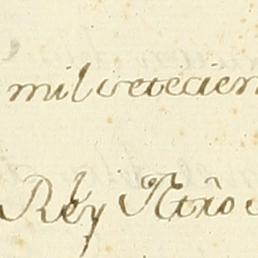 mil cetecien
Rey Ntrõ